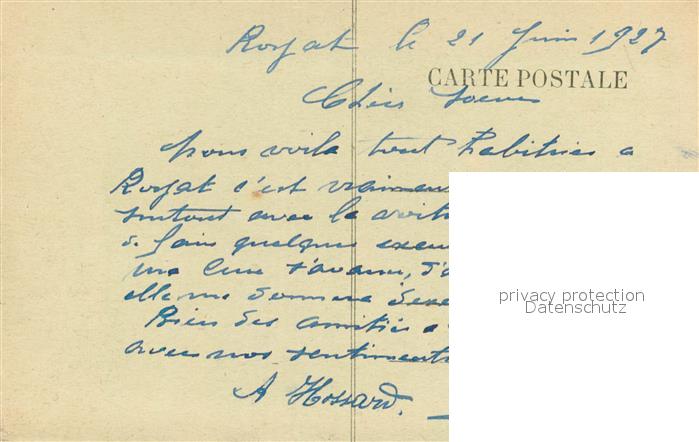 Royat le 21 Juin 1927
CARTE POSTALE
Chers soeurs
nous voila tout habitués a
Royat c'est vraiment
surtout avec la voitu
faire quelques excu
une cure
elle me donnera
Bien des amitiés a
avec nos sentiments
A Hossard.
privacy protection
Datenschutz